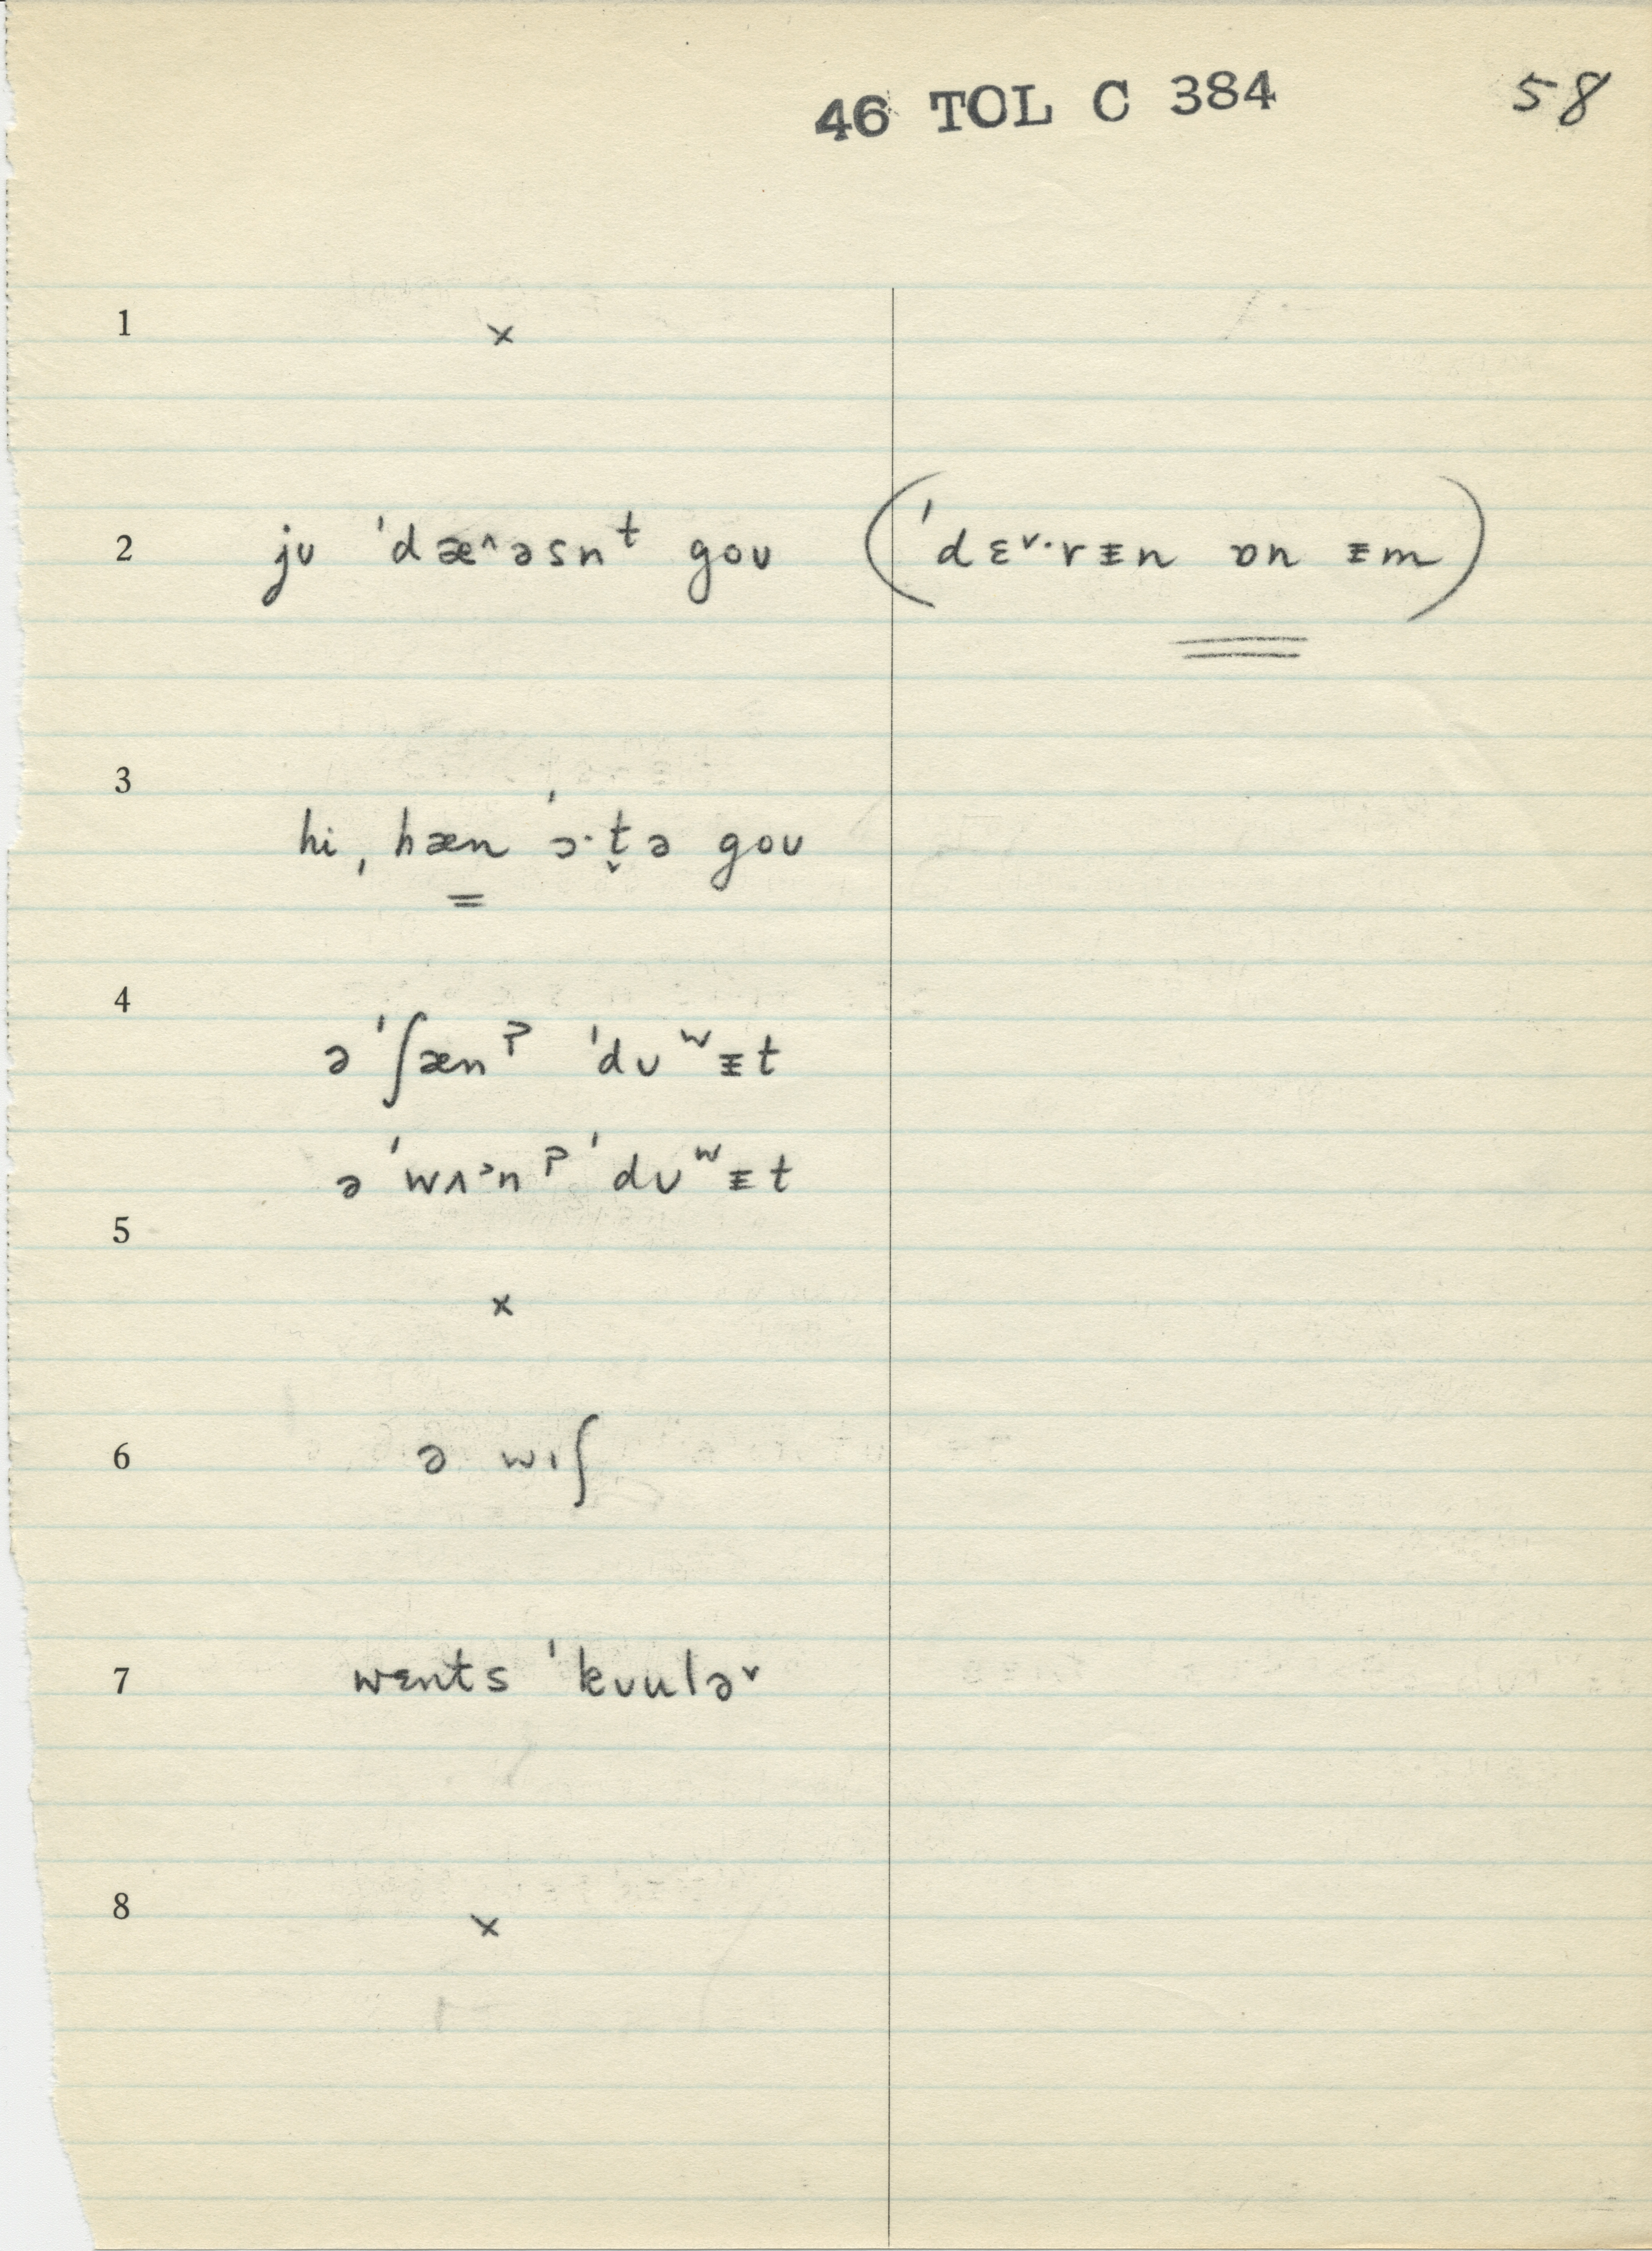 46 TOL C 384 58
1 ×
2 jʊ ˈdæ^əsnᵗ goʊ (ˈdɛᵛ·rᵻn ɒn ᵻm)
3
hi ˌhæn ˈɔ·t̬ə goʊ
4
ə ˈʃænˀ ˈdʊʷᵻt
ə ˈwʌ˃nˀ ˈdʊʷᵻt
5
×
6 ə wɪʃ
7 wɛnts ˈkʊulə˅
8 ×